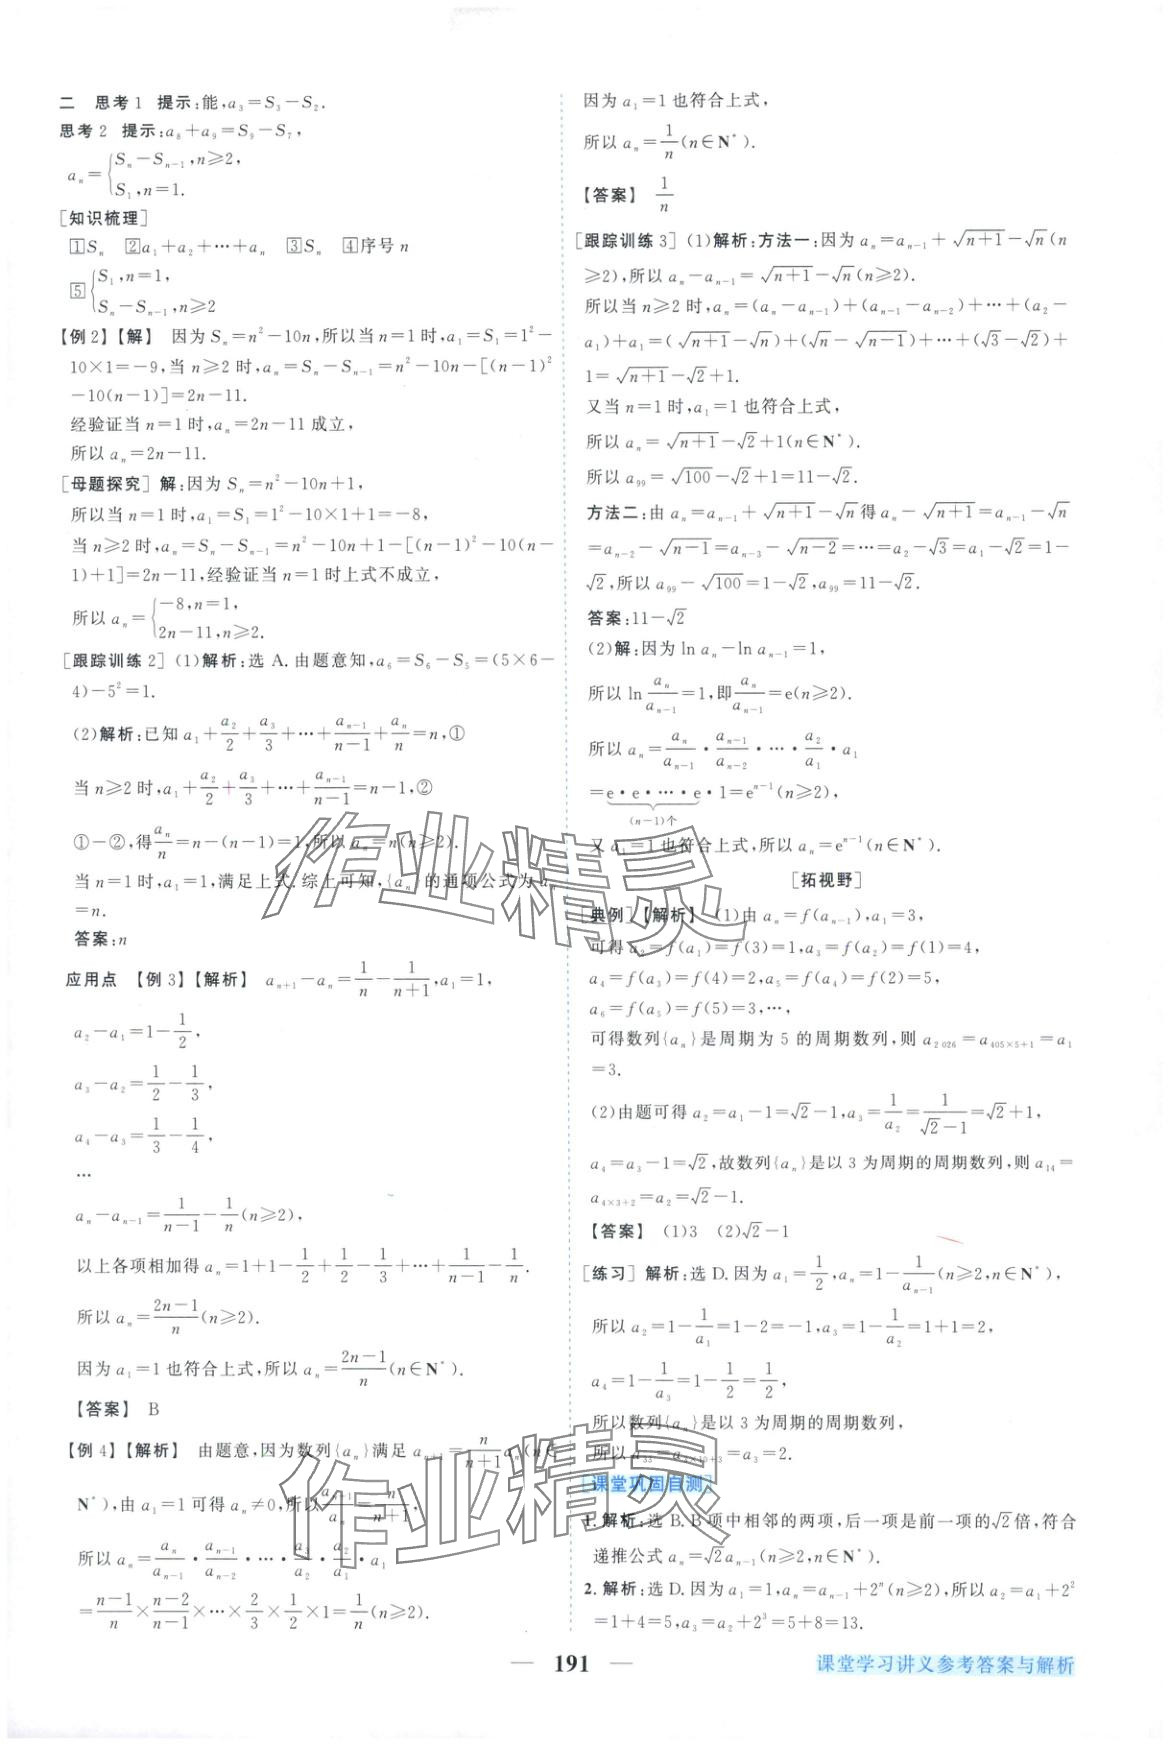 二 思考1 提示:能,a₃=S₃-S₂.
思考2 提示:a₈+a₉=S₉-S₇,
aₙ={Sₙ-Sₙ₋₁,n≥2,
S₁,n=1.
[知识梳理]
1 Sₙ 2 a₁+a₂+…+aₙ 3 Sₙ 4 序号 n
5 {S₁,n=1,
Sₙ-Sₙ₋₁,n≥2
【例2】【解】 因为 Sₙ=n²-10n,所以当 n=1 时,a₁=S₁=1²-
10×1=-9,当 n≥2 时,aₙ=Sₙ-Sₙ₋₁=n²-10n-[(n-1)²
-10(n-1)]=2n-11.
经验证当 n=1 时,aₙ=2n-11 成立,
所以 aₙ=2n-11.
[母题探究] 解:因为 Sₙ=n²-10n+1,
所以当 n=1 时,a₁=S₁=1²-10×1+1=-8,
当 n≥2 时,aₙ=Sₙ-Sₙ₋₁=n²-10n+1-[(n-1)²-10(n-
1)+1]=2n-11,经验证当 n=1 时上式不成立,
所以 aₙ={-8,n=1,
2n-11,n≥2.
[跟踪训练2] (1)解析:选 A.由题意知,a₆=S₆-S₅=(5×6-
4)-5²=1.
(2)解析:已知 a₁+a₂/2+a₃/3+…+aₙ₋₁/(n-1)+aₙ/n=n,①
当 n≥2 时,a₁+a₂/2+a₃/3+…+aₙ₋₁/(n-1)=n-1,②
①-②,得 aₙ/n=n-(n-1)=1,所以 aₙ=n(n≥2).
当 n=1 时,a₁=1,满足上式.综上可知,{aₙ}的通项公式为 aₙ
=n.
答案:n
应用点 【例3】【解析】 aₙ₊₁-aₙ=1/n-1/(n+1),a₁=1,
a₂-a₁=1-1/2,
a₃-a₂=1/2-1/3,
a₄-a₃=1/3-1/4,
…
aₙ-aₙ₋₁=1/(n-1)-1/n(n≥2),
以上各项相加得 aₙ=1+1-1/2+1/2-1/3+…+1/(n-1)-1/n.
所以 aₙ=(2n-1)/n(n≥2).
因为 a₁=1 也符合上式,所以 aₙ=(2n-1)/n(n∈N*).
【答案】 B
【例4】【解析】 由题意,因为数列{aₙ}满足 aₙ₊₁=n/(n+1)aₙ(n∈
N*),由 a₁=1 可得 aₙ≠0,所以 aₙ₊₁/aₙ=n/(n+1),
所以 aₙ=aₙ/aₙ₋₁·aₙ₋₁/aₙ₋₂·…·a₃/a₂·a₂/a₁·a₁
=(n-1)/n×(n-2)/(n-1)×…×2/3×1/2×1=1/n(n≥2).
因为 a₁=1 也符合上式,
所以 aₙ=1/n(n∈N*).
【答案】 1/n
[跟踪训练3] (1)解析:方法一:因为 aₙ=aₙ₋₁+√(n+1)-√n(n
≥2),所以 aₙ-aₙ₋₁=√(n+1)-√n(n≥2).
所以当 n≥2 时,aₙ=(aₙ-aₙ₋₁)+(aₙ₋₁-aₙ₋₂)+…+(a₂-
a₁)+a₁=(√(n+1)-√n)+(√n-√(n-1))+…+(√3-√2)+
1=√(n+1)-√2+1.
又当 n=1 时,a₁=1 也符合上式,
所以 aₙ=√(n+1)-√2+1(n∈N*).
所以 a₉₉=√100-√2+1=11-√2.
方法二:由 aₙ=aₙ₋₁+√(n+1)-√n得 aₙ-√(n+1)=aₙ₋₁-√n
=aₙ₋₂-√(n-1)=aₙ₋₃-√(n-2)=…=a₂-√3=a₁-√2=1-
√2,所以 a₉₉-√100=1-√2,a₉₉=11-√2.
答案:11-√2
(2)解:因为 ln aₙ-ln aₙ₋₁=1,
所以 ln aₙ/aₙ₋₁=1,即 aₙ/aₙ₋₁=e(n≥2).
所以 aₙ=aₙ/aₙ₋₁·aₙ₋₁/aₙ₋₂·…·a₂/a₁·a₁
=e·e·…·e·1=eⁿ⁻¹(n≥2),
(n-1)个
又 a₁=1 也符合上式,所以 aₙ=eⁿ⁻¹(n∈N*).
[拓视野]
[典例]【解析】 (1)由 aₙ=f(aₙ₋₁),a₁=3,
可得 a₂=f(a₁)=f(3)=1,a₃=f(a₂)=f(1)=4,
a₄=f(a₃)=f(4)=2,a₅=f(a₄)=f(2)=5,
a₆=f(a₅)=f(5)=3,…,
可得数列{aₙ}是周期为 5 的周期数列,则 a₂ ₀₂₆=a₄₀₅ₓ₅₊₁=a₁
=3.
(2)由题可得 a₂=a₁-1=√2-1,a₃=1/a₂=1/(√2-1)=√2+1,
a₄=a₃-1=√2,故数列{aₙ}是以 3 为周期的周期数列,则 a₁₄=
a₄ₓ₃₊₂=a₂=√2-1.
【答案】 (1)3 (2)√2-1
[练习] 解析:选 D.因为 a₁=1/2,aₙ=1-1/aₙ₋₁(n≥2,n∈N*),
所以 a₂=1-1/a₁=1-2=-1,a₃=1-1/a₂=1+1=2,
a₄=1-1/a₃=1-1/2=1/2,
所以数列{aₙ}是以 3 为周期的周期数列,
所以 a₃₃=a₃ₓ₁₀₊₃=a₃=2.
[课堂巩固自测]
1.解析:选 B.B 项中相邻的两项,后一项是前一项的√2倍,符合
递推公式 aₙ=√2aₙ₋₁(n≥2,n∈N*).
2.解析:选 D.因为 a₁=1,aₙ=aₙ₋₁+2ⁿ(n≥2),所以 a₂=a₁+2²
=1+4=5,a₃=a₂+2³=5+8=13.
作业精灵
作业精灵
191
课堂学习讲义参考答案与解析